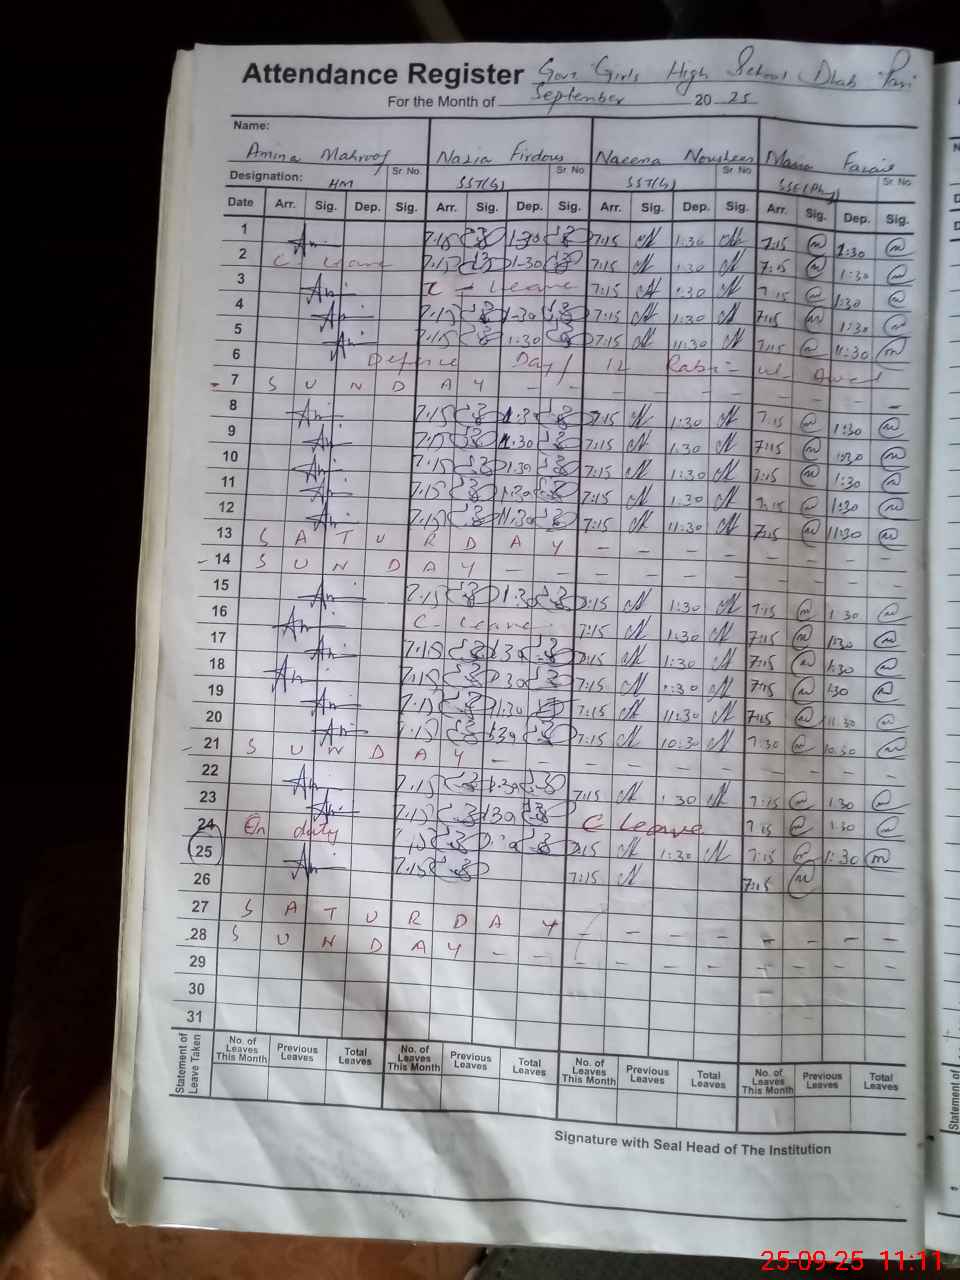 Attendance Register Govt Girls High School Dhab Pari
For the Month of September 20 25
Name:
Amina Mahroof Nazia Firdous Naeena Nousheen
Designation: HM Sr. No. SST(G) Sr. No. SST(G) Sr. No. Sr. No.
Date Arr. Sig. Dep. Sig. Arr. Sig. Dep. Sig. Arr. Sig. Dep. Sig. Arr. Sig. Dep. Sig.
1 7:15 1:30 7:15 1:30 7:15 1:30
2 C- Leave 7:15 1:30 7:15 1:30 7:15 1:30
3 C - Leave 7:15 1:30 7:15 1:30
4 7:15 1:30 7:15 1:30 7:15 1:30
5 7:15 1:30 7:15 11:30 7:15 11:30
6 Defence Day / 12 Rabi- ul- Awal
7 S U N D A Y - - - - - - - - -
8 7:15 1:30 7:15 1:30 7:15 1:30
9 7:15 1:30 7:15 1:30 7:15 1:30
10 7:15 1:30 7:15 1:30 7:15 1:30
11 7:15 1:30 7:15 1:30 7:15 1:30
12 7:15 11:30 7:15 11:30 7:15 11:30
13 S A T U R D A Y - - - - - - - -
14 S U N D A Y - - - - - - - - - -
15 7:15 1:30 7:15 1:30 7:15 1:30
16 C- Leave 7:15 1:30 7:15 1:30
17 7:15 1:30 7:15 1:30 7:15 1:30
18 7:15 1:30 7:15 1:30 7:15 1:30
19 7:15 11:30 7:15 11:30 7:15 11:30
20 7:15 7:15 10:30 7:30 10:30
21 S U N D A Y - - - - - - - - - -
22 7:15 1:30 7:15 1:30 7:15 1:30
23 7:15 1:30 C Leave 7:15 1:30
24 On duty 7:15 7:15 1:30 7:15 1:30
25 7:15 7:15 7:15
26
27 S A T U R D A Y - - - - - - - -
28 S U N D A Y - - - - - - - - - -
29
30
31
Statement of Leave Taken
No. of Leaves This Month Previous Leaves Total Leaves No. of Leaves This Month Previous Leaves Total Leaves No. of Leaves This Month Previous Leaves Total Leaves No. of Leaves This Month Previous Leaves Total Leaves
Signature with Seal Head of The Institution
25-09-25 11:11